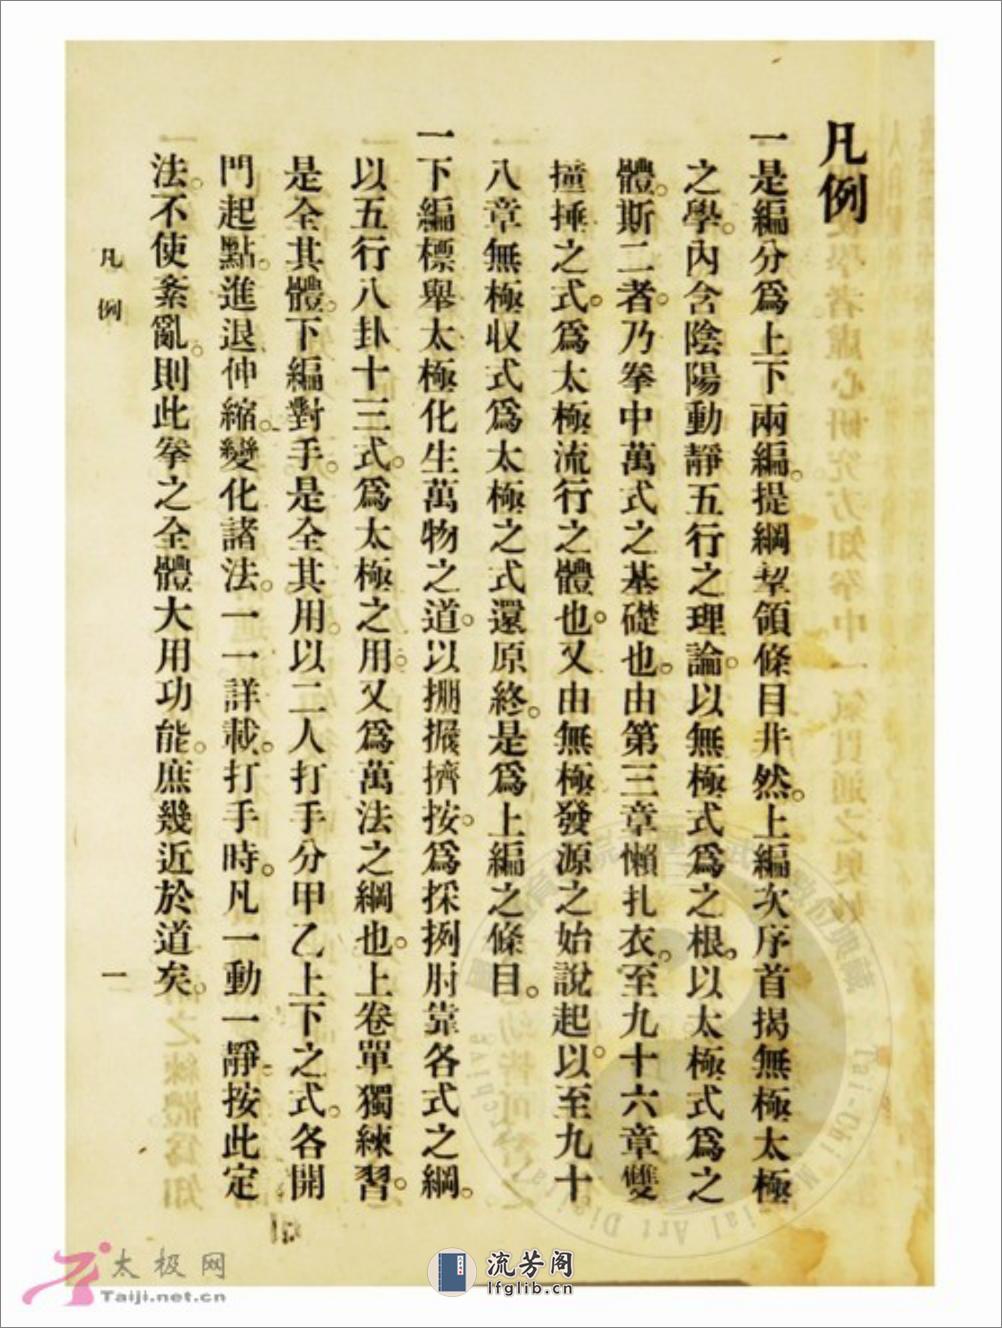 凡例
一是編分爲上下兩編。提綱挈領條目井然。上編次序首揭無極太極
之學。內含陰陽動靜五行之理論。以無極式爲之根。以太極式爲之
體。斯二者。乃拳中萬式之基礎也。由第三章懶扎衣。至九十六章雙
撞捶之式。爲太極流行之體也。又由無極發源之始說起。以至九十
八章無極收式爲太極之式還原終。是爲上編之條目。
一下編標舉太極化生萬物之道。以掤攦擠按。爲採挒肘靠各式之綱。
以五行八卦十三式。爲太極之用。又爲萬法之綱也。上卷單獨練習。
是全其體。下編對手。是全其用。以二人打手分甲乙上下之式。各開
門起點。進退伸縮。變化諸法。一一詳載。打手時。凡一動一靜。按此定
法。不使紊亂。則此拳之全體大用功能。庶幾近於道矣。
凡例
一
太极网
Taiji.net.cn
流芳阁
lfglib.cn